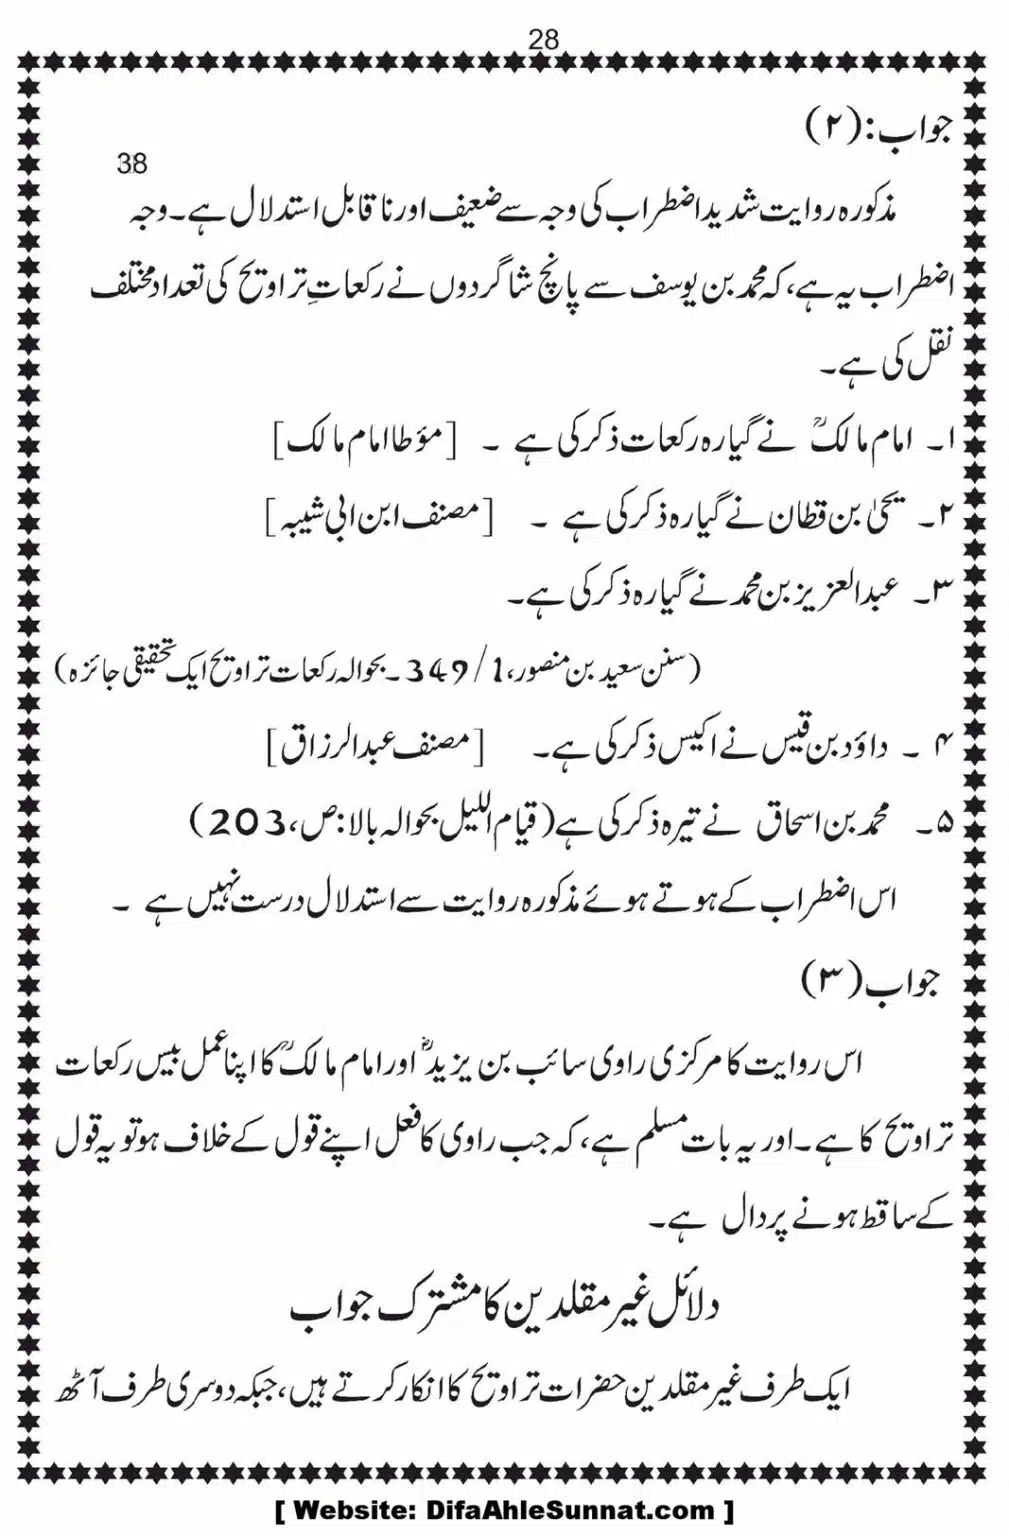 28
جواب:(۲)
38
مذکورہ روایت شدید اضطراب کی وجہ سے ضعیف اور نا قابل استدلال ہے۔وجہ
اضطراب یہ ہے، کہ محمد بن یوسف سے پانچ شاگردوں نے رکعاتِ تراویح کی تعداد مختلف
نقل کی ہے۔
۱۔ امام مالکؒ نے گیارہ رکعات ذکر کی ہے ۔ [مؤطا امام مالک]
۲۔ یحیٰ بن قطان نے گیارہ ذکر کی ہے ۔ [مصنف ابن ابی شیبہ]
۳۔ عبدالعزیز بن محمد نے گیارہ ذکر کی ہے۔
(سنن سعید بن منصور، 349/1۔ بحوالہ رکعات تراویح ایک تحقیقی جائزہ)
۴ ۔ داؤد بن قیس نے اکیس ذکر کی ہے۔ [مصنف عبدالرزاق]
۵۔ محمد بن اسحاق نے تیرہ ذکر کی ہے (قیام اللیل بحوالہ بالا:ص، 203)
اس اضطراب کے ہوتے ہوئے مذکورہ روایت سے استدلال درست نہیں ہے ۔
جواب(۳)
اس روایت کا مرکزی راوی سائب بن یزیدؓ اور امام مالکؒ کا اپنا عمل بیس رکعات
تراویح کا ہے۔ اور یہ بات مسلم ہے، کہ جب راوی کا فعل اپنے قول کے خلاف ہو تو یہ قول
کے ساقط ہونے پر دال ہے۔
دلائل غیر مقلدین کا مشترک جواب
ایک طرف غیر مقلدین حضرات تراویح کا انکار کرتے ہیں، جبکہ دوسری طرف آٹھ
[ Website: DifaAhleSunnat.com ]